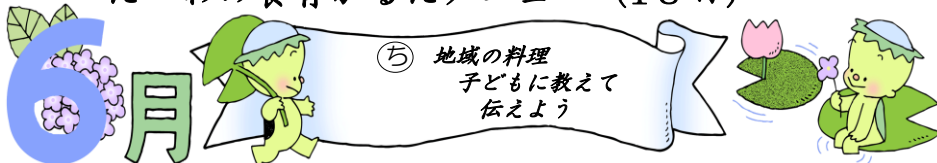 6月
ち 地域の料理
子どもに教えて
伝えよう